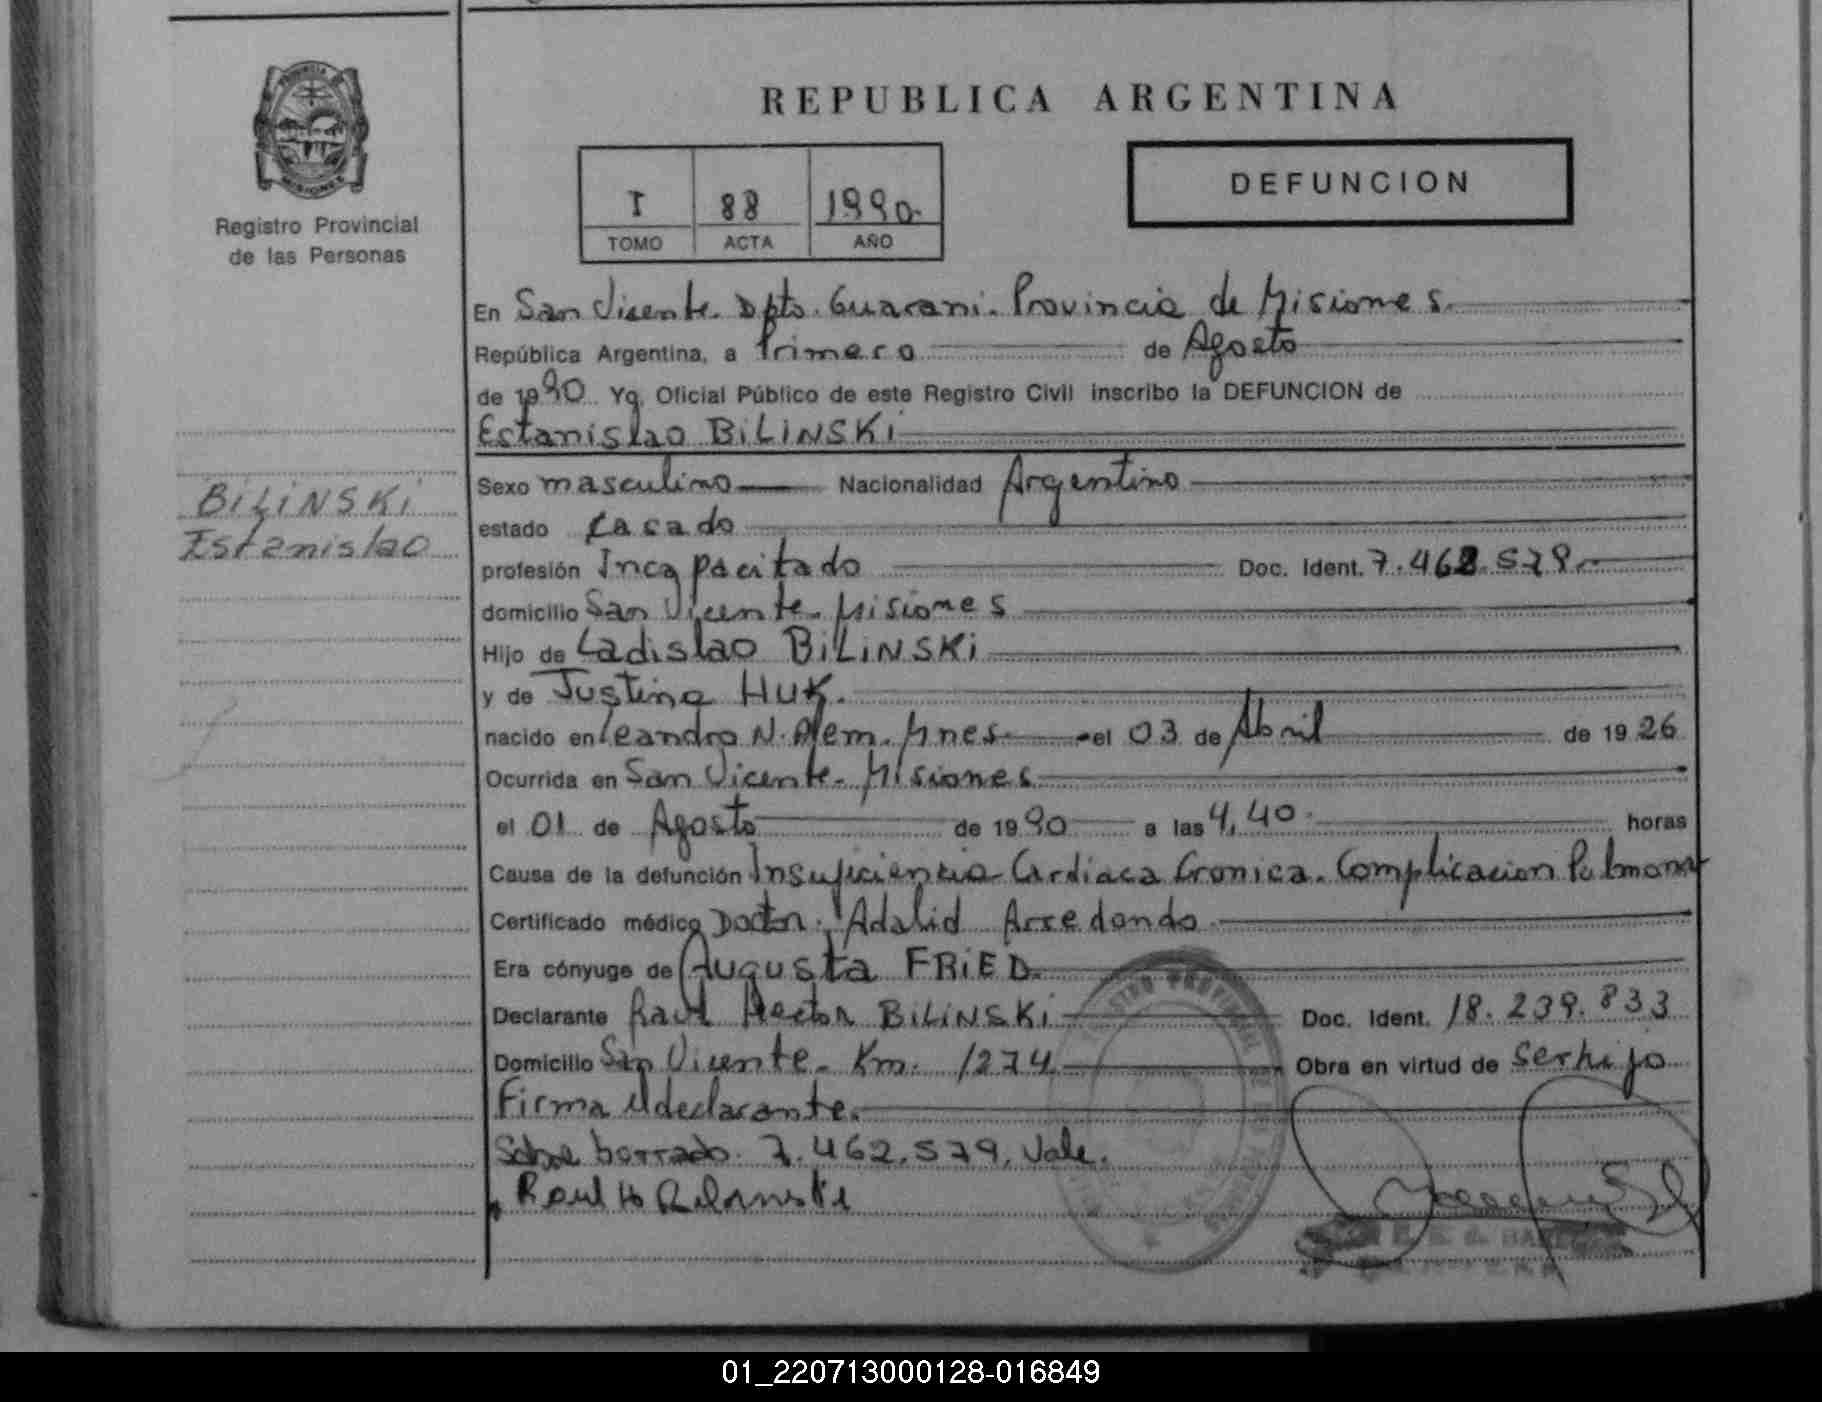 PROVINCIA DE
MISIONES
Registro Provincial
de las Personas
BILINSKI
Estanislao
REPUBLICA ARGENTINA
I 88 1990.
TOMO ACTA AÑO
DEFUNCION
En San Vicente. Dpto. Guarani. Provincia de Misiones.
República Argentina, a Primero de Agosto
de 1990 Yo, Oficial Público de este Registro Civil inscribo la DEFUNCION de
Estanislao BILINSKI
Sexo masculino Nacionalidad Argentino
estado Casado
profesión Incapacitado Doc. Ident. 7.462.579.
domicilio San Vicente. Misiones
Hijo de Ladislao BILINSKI
y de Justina HUK.
nacido en Leandro N. Alem. Mnes. el 03 de Abril de 1926
Ocurrida en San Vicente. Misiones
el 01 de Agosto de 1990 a las 4,40. horas
Causa de la defunción Insuficiencia Cardiaca Cronica. Complicacion Pulmonar
Certificado médico Doctor. Adalid Arredondo
Era cónyuge de Augusta FRIED.
Declarante Raul Hector BILINSKI Doc. Ident. 18.239.833
Domicilio San Vicente. Km. 1274 Obra en virtud de ser hijo
Firma el declarante.
Sobre borrado. 7.462.579. Vale.
Raul H Bilinski
01_220713000128-016849